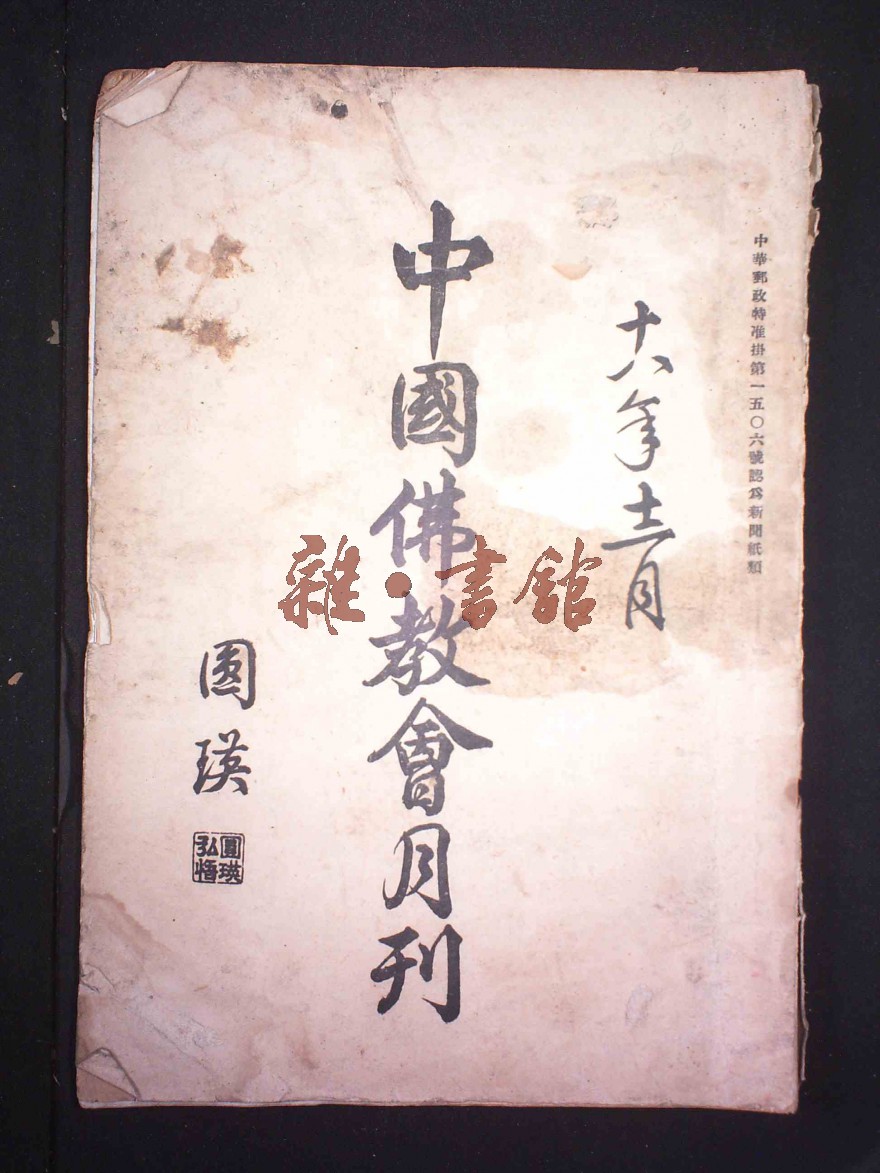 中華郵政特准掛第一五〇六號認爲新聞紙類
十八年十二月
中國佛教會月刊
圓瑛
圓瑛
弘悟
雜·書館